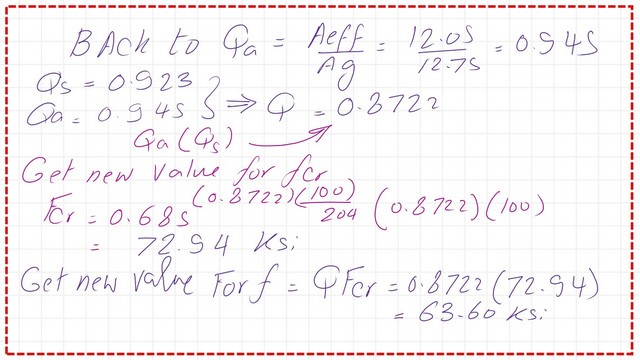 BACK to Qa = Aeff/Ag = 12.05/12.75 = 0.945
Qs = 0.923
Qa = 0.945 } ⇒ Q = 0.8722
Qa(Qs)
Get new value for fcr
Fcr = 0.685^(0.8722)(100)/204 (0.8722)(100)
= 72.94 Ksi
Get new value For f = QFcr = 0.8722(72.94)
= 63.60 Ksi